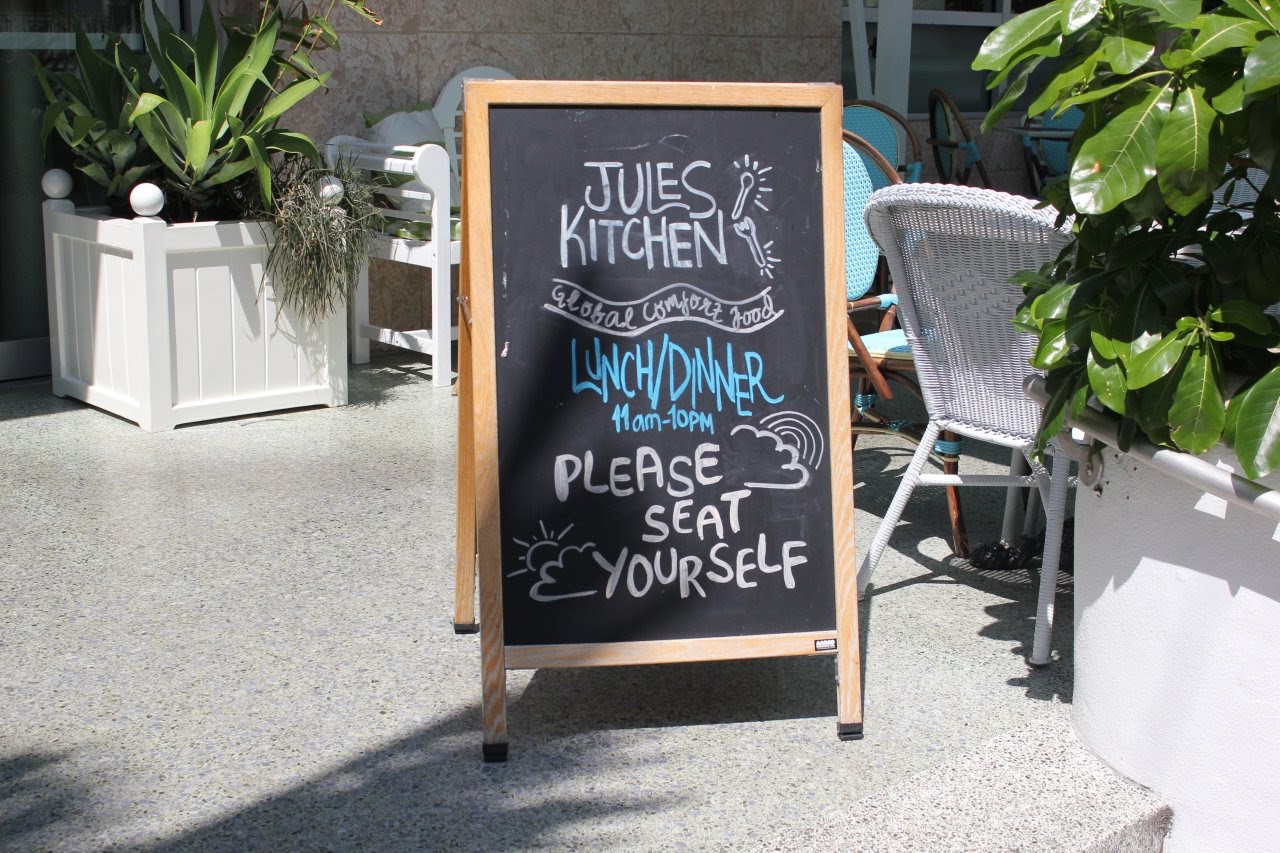 JULES
KITCHEN
Global Comfort Food
LUNCH/DINNER
11am-10PM
PLEASE
SEAT
YOURSELF